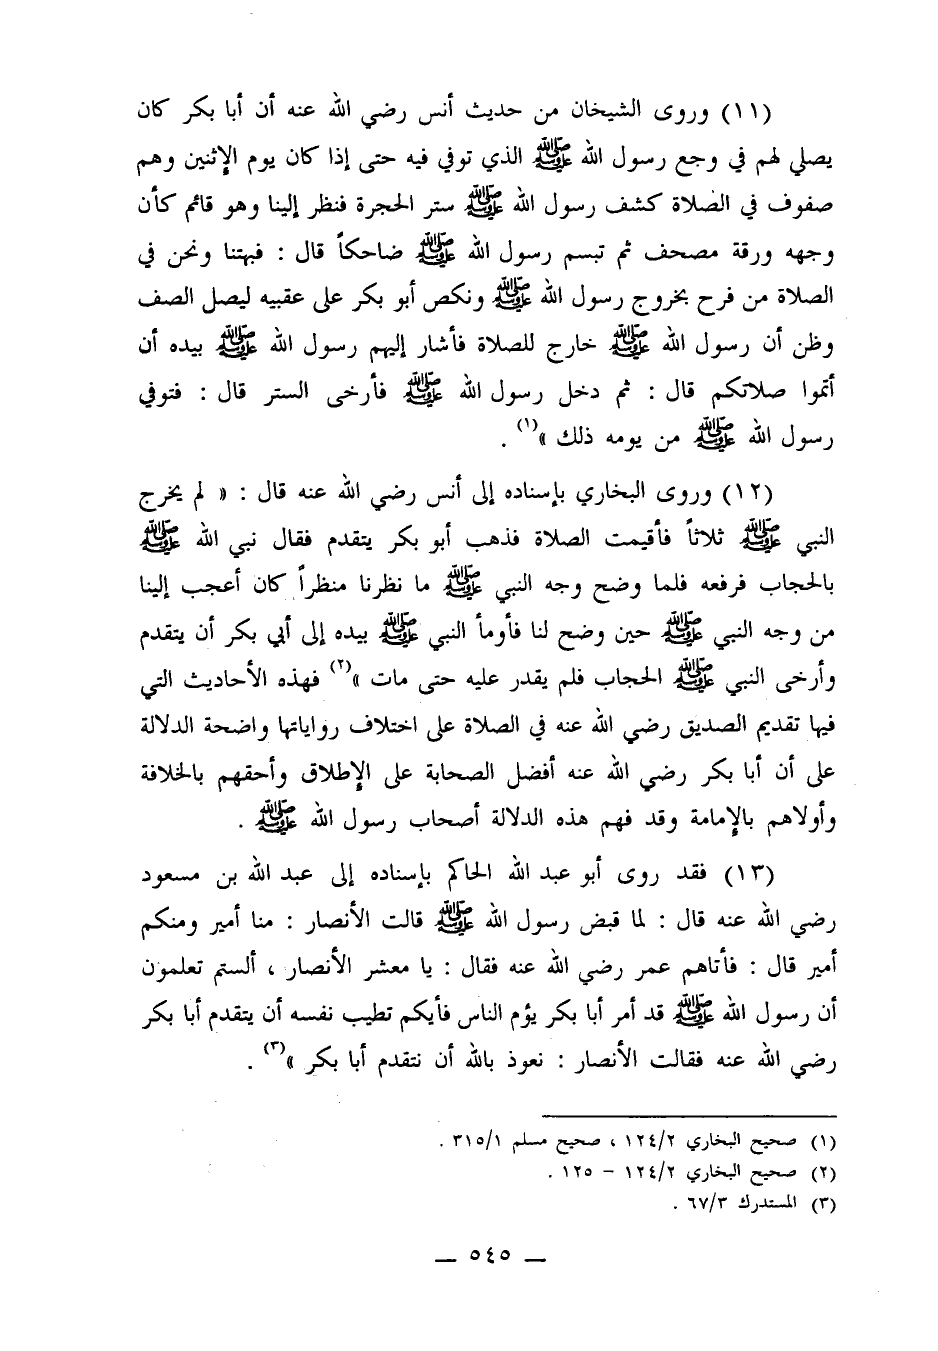 (١١) وروى الشيخان من حديث أنس رضي الله عنه أن أبا بكر كان
يصلي لهم في وجع رسول الله ﷺ الذي توفي فيه حتى إذا كان يوم الإثنين وهم
صفوف في الصلاة كشف رسول الله ﷺ ستر الحجرة فنظر إلينا وهو قائم كأن
وجهه ورقة مصحف ثم تبسم رسول الله ﷺ ضاحكاً قال : فبهتنا ونحن في
الصلاة من فرح بخروج رسول الله ﷺ ونكص أبو بكر على عقبيه ليصل الصف
وظن أن رسول الله ﷺ خارج للصلاة فأشار إليهم رسول الله ﷺ بيده أن
أتموا صلاتكم قال : ثم دخل رسول الله ﷺ فأرخى الستر قال : فتوفي
رسول الله ﷺ من يومه ذلك »(١) .
(١٢) وروى البخاري بإسناده إلى أنس رضي الله عنه قال : « لم يخرج
النبي ﷺ ثلاثاً فأقيمت الصلاة فذهب أبو بكر يتقدم فقال نبي الله ﷺ
بالحجاب فرفعه فلما وضح وجه النبي ﷺ ما نظرنا منظراً كان أعجب إلينا
من وجه النبي ﷺ حين وضح لنا فأومأ النبي ﷺ بيده إلى أبي بكر أن يتقدم
وأرخى النبي ﷺ الحجاب فلم يقدر عليه حتى مات »(٢) فهذه الأحاديث التي
فيها تقديم الصديق رضي الله عنه في الصلاة على اختلاف رواياتها واضحة الدلالة
على أن أبا بكر رضي الله عنه أفضل الصحابة على الإطلاق وأحقهم بالخلافة
وأولاهم بالإمامة وقد فهم هذه الدلالة أصحاب رسول الله ﷺ .
(١٣) فقد روى أبو عبد الله الحاكم بإسناده إلى عبد الله بن مسعود
رضي الله عنه قال : لما قبض رسول الله ﷺ قالت الأنصار : منا أمير ومنكم
أمير قال : فأتاهم عمر رضي الله عنه فقال : يا معشر الأنصار ، ألستم تعلمون
أن رسول الله ﷺ قد أمر أبا بكر يؤم الناس فأيكم تطيب نفسه أن يتقدم أبا بكر
رضي الله عنه فقالت الأنصار : نعوذ بالله أن نتقدم أبا بكر »(٣) .
(١) صحيح البخاري ١٢٤/٢ ، صحيح مسلم ٣١٥/١ .
(٢) صحيح البخاري ١٢٤/٢ – ١٢٥ .
(٣) المستدرك ٦٧/٣ .
— ٥٤٥ —